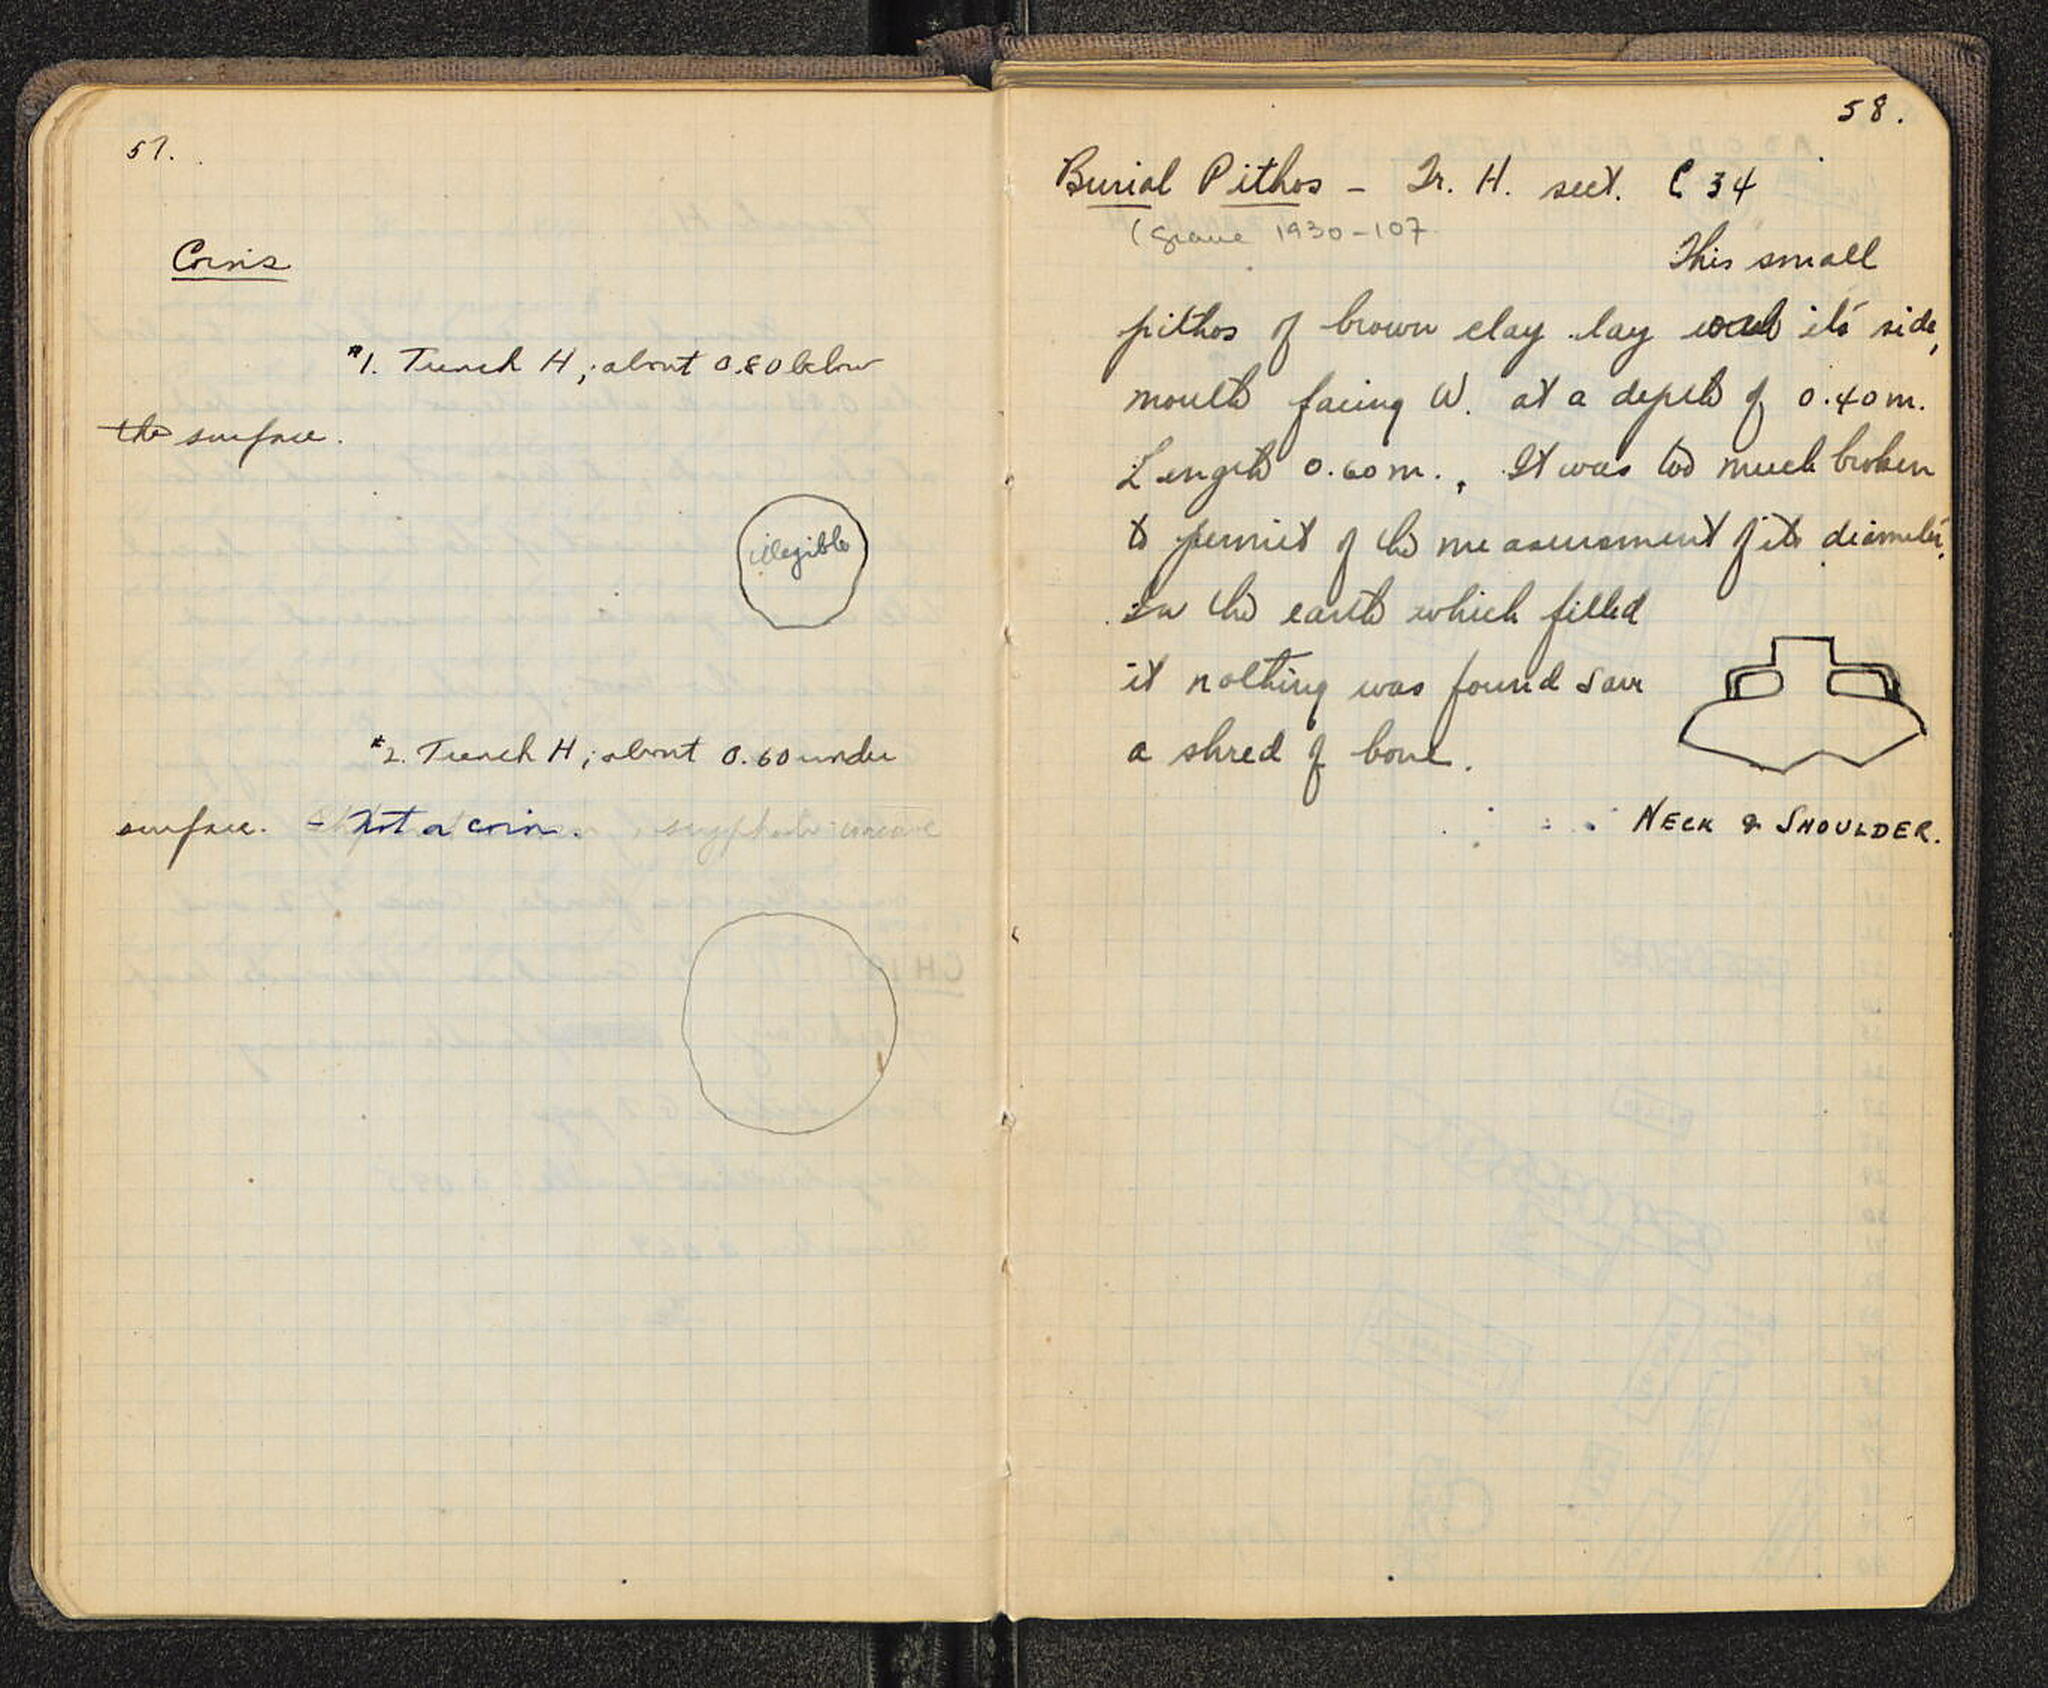 57.
Coins
#1. Trench H; about 0.80 below
the surface.
illegible
#2. Trench H; about 0.60 under
surface. - Not a coin.
58.
Burial Pithos - Tr. H. sect. C 34
(Grave 1930-107
This small
pithos of brown clay lay its side,
mouth facing W. at a depth of 0.40 m.
Length 0.60 m. It was too much broken
to permit of the measurement of its diameter.
In the earth which filled
it nothing was found save
a shred of bone.
NECK & SHOULDER.